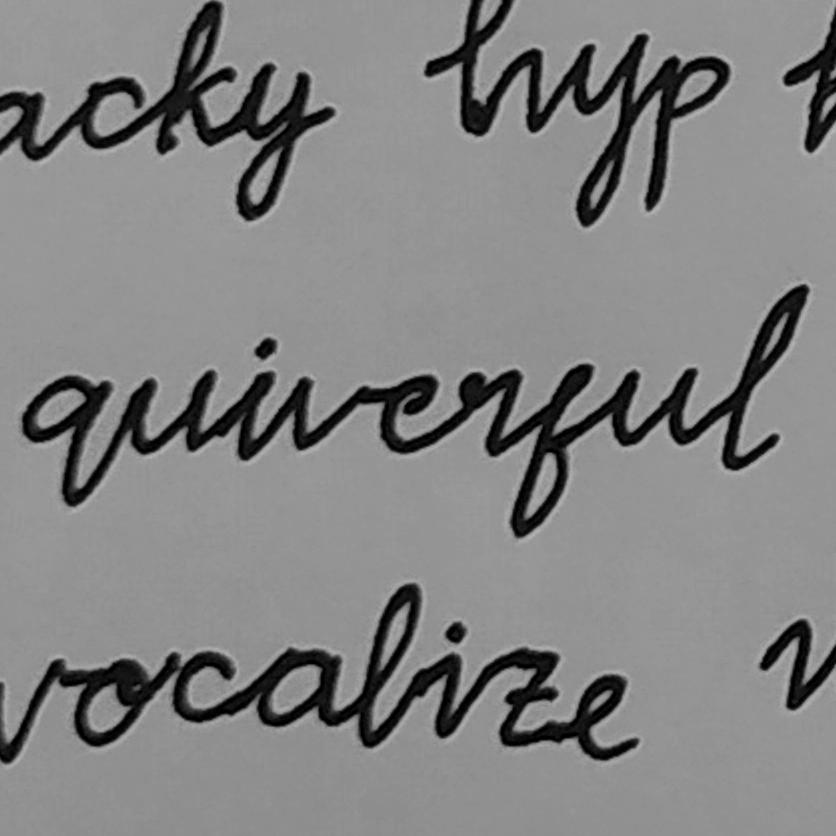 acky hyp
quiverful
vocalize